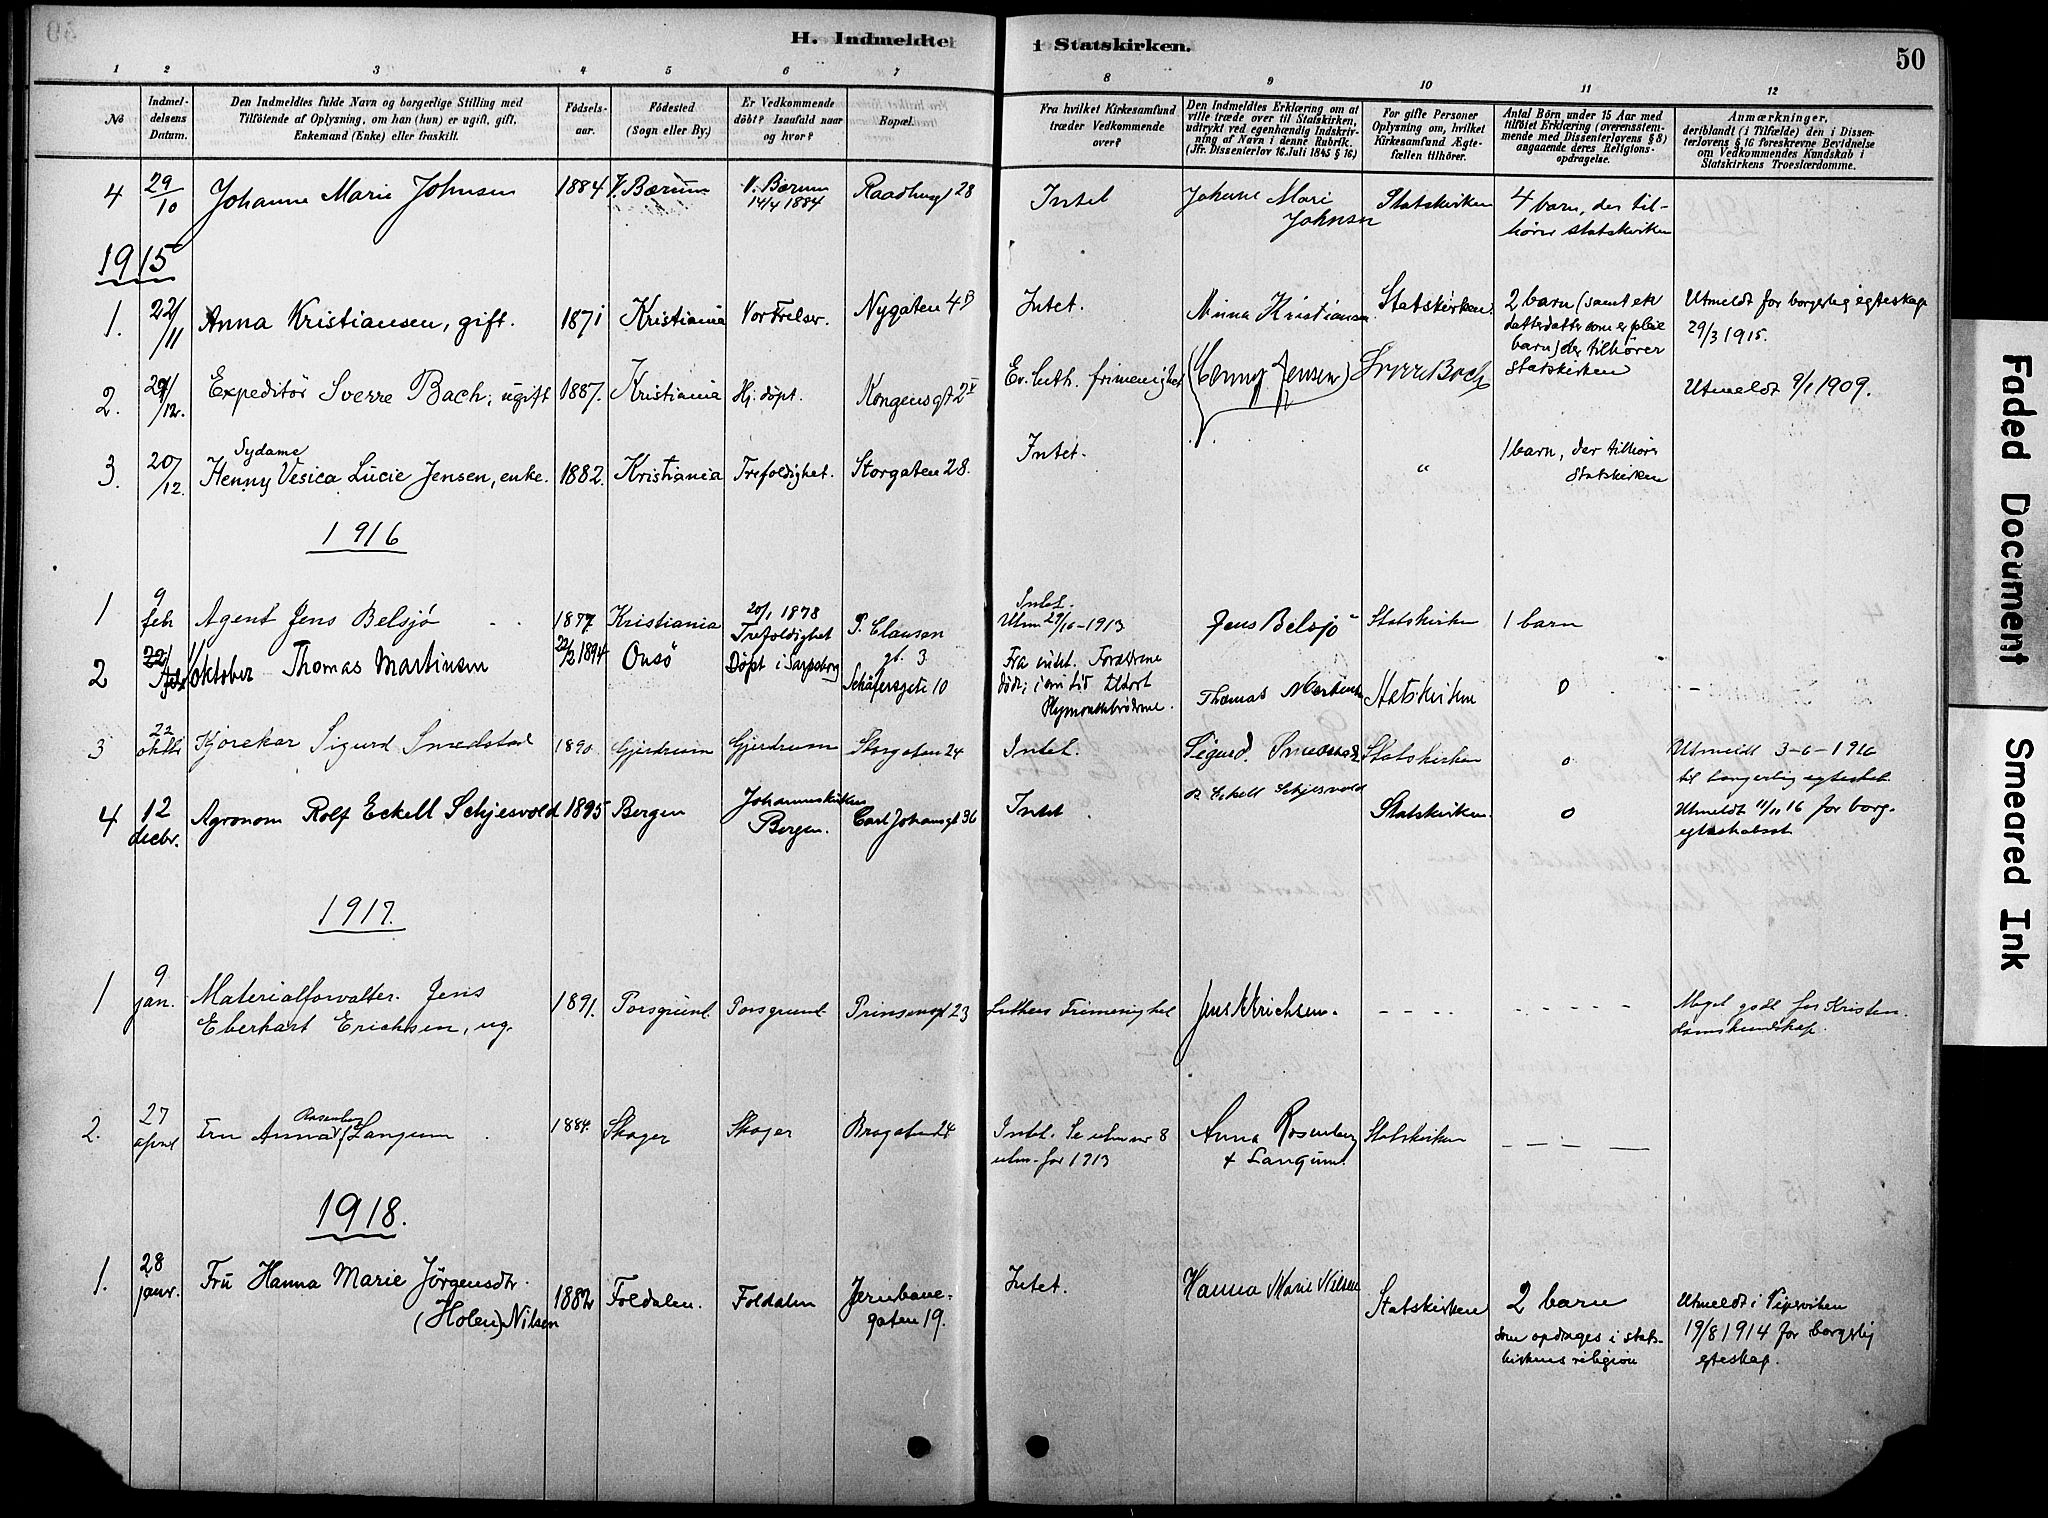 H. Indmeldte i Statskirken.
50
1 2 3 4 5 6 7 8 9 10 11 12
No
Indmel-
delsens
Datum.
Den Indmeldtes fulde Navn og borgerlige Stilling med
Tilföiende af Oplysning, om han (hun) er ugift, gift,
Enkemand (Enke) eller fraskilt.
Födsels-
aar.
Födested
(Sogn eller By.)
Er Vedkommende
döbt? Isaafald naar
og hvor?
Bopæl.
Fra hvilket Kirkesamfund
træder Vedkommende
over?
Den Indmeldtes Erklæring om at
ville træde over til Statskirken,
udtrykt ved egenhændig Indskriv-
ning af Navn i denne Rubrik.
(Jfr. Dissenterlov 16 Juli 1845 § 16)
For gifte Personer
Oplysning om, hvilket
Kirkesamfund Ægte-
fællen tilhörer.
Antal Börn under 15 Aar med
tilföiet Erklæring (overensstem-
mende med Dissenterlovens § 8)
angaaende deres Religions-
opdragelse.
Anmærkninger,
deriblandt (i Tilfælde) den i Dissen-
terlovens § 16 foreskrevne Bevidnelse
om Vedkommendes Kundskab i
Statskirkens Troeslærdomme.
4 29/10 Johanne Marie Johnsen 1884 V. Bærum V. Bærum Raadhusgt 28 Intet Johane Mari Statskirken 4 barn, der til-
14/4 1884 Johnsen hører statskirken
1915
1. 22/11 Anna Kristiansen, gift. 1871 Kristiania Vor Frelser. Nygaten 4B Intet. Minna Kristiansen. Statskirken. 2 barn (samt en Utmeldt for borgerlig egteskap
datterdatter som er pleie 29/3 1915.
barn) der tilhører
statskirken
2. 29/12. Expeditör Sverre Bach, ugift 1887. Kristiania Hj. döpt. Kongensgt 2 Ev. luth. frimenighet (Henny Jensen) Sverre Bach Utmeldt 9/1 1909.
Sydame
3. 20/12. Henny Vesica Lucie Jensen, enke. 1882. Kristiania Trefoldighet. Storgaten 28. Intet. " 1 barn, der tilhör
Statskirken
1916
1 9 feb Agent Jens Belsjö 1877 Kristiania 20/1 1878 Trefoldighet P. Clausen gt. 3 Intet. Utm 29/10-1913 Jens Belsjö Statskirken 1 barn
2 11 oktober Thomas Martinsen 22/2 1894 Onsö Döpt i Sarpsborg Schäfersgate 10 Fra intet. Forældrene
døde; i sin tid tilhørt Plymouthbrödrene. Thomas Martinsen Statskirken 0 -
3 22 oktbr Kjørekar Sigurd Smedstad 1890. Gjerdrum Gjerdrum Storgaten 24 Intet. Sigurd. Smedstad Statskirken 0 Utmeldt 3-6-1916
til borgerlig egteskab
4 12 decbr. Agronom Rolf Eckell Schjesvold 1895 Bergen Johanneskirken Bergen. Carl Johansgt 36 Intet. R. Eckell Schjesvold Statskirken. 0 Utmeldt 11/11 16 for borg.
egteskabst.
1917.
1 9 jan. Materialforvalter. Jens
Eberhart Erichsen, ug. 1891. Porsgrund. Porsgrund Prinsensgt 23 Luthers Frimenighet Jens Erichsen. - - - - - - - - - Meget godt for Kristen-
domskundskap.
2. 27 april Fru Anna Rosenberg f Langum 1884. Skoger Skoger Brogaten 24 Intet. Se utm nr 8
utm. for 1913 Anna Rosenberg
f Langum. Statskirken - - - -
1918.
1. 28 janr. Frü Hanna Marie Jörgensdtr.
(Holen) Nilsen 1882 Foldalen. Foldalen Jernbane-
gaten 19. Intet. Hanna Marie Nilsen Statskirken 2 barn
som opdrages i stats-
kirkens religion
Utmeldt i Pipervitken
19/8 1914 for borgerlig
egteskap.
Faded Document
Smeared Ink